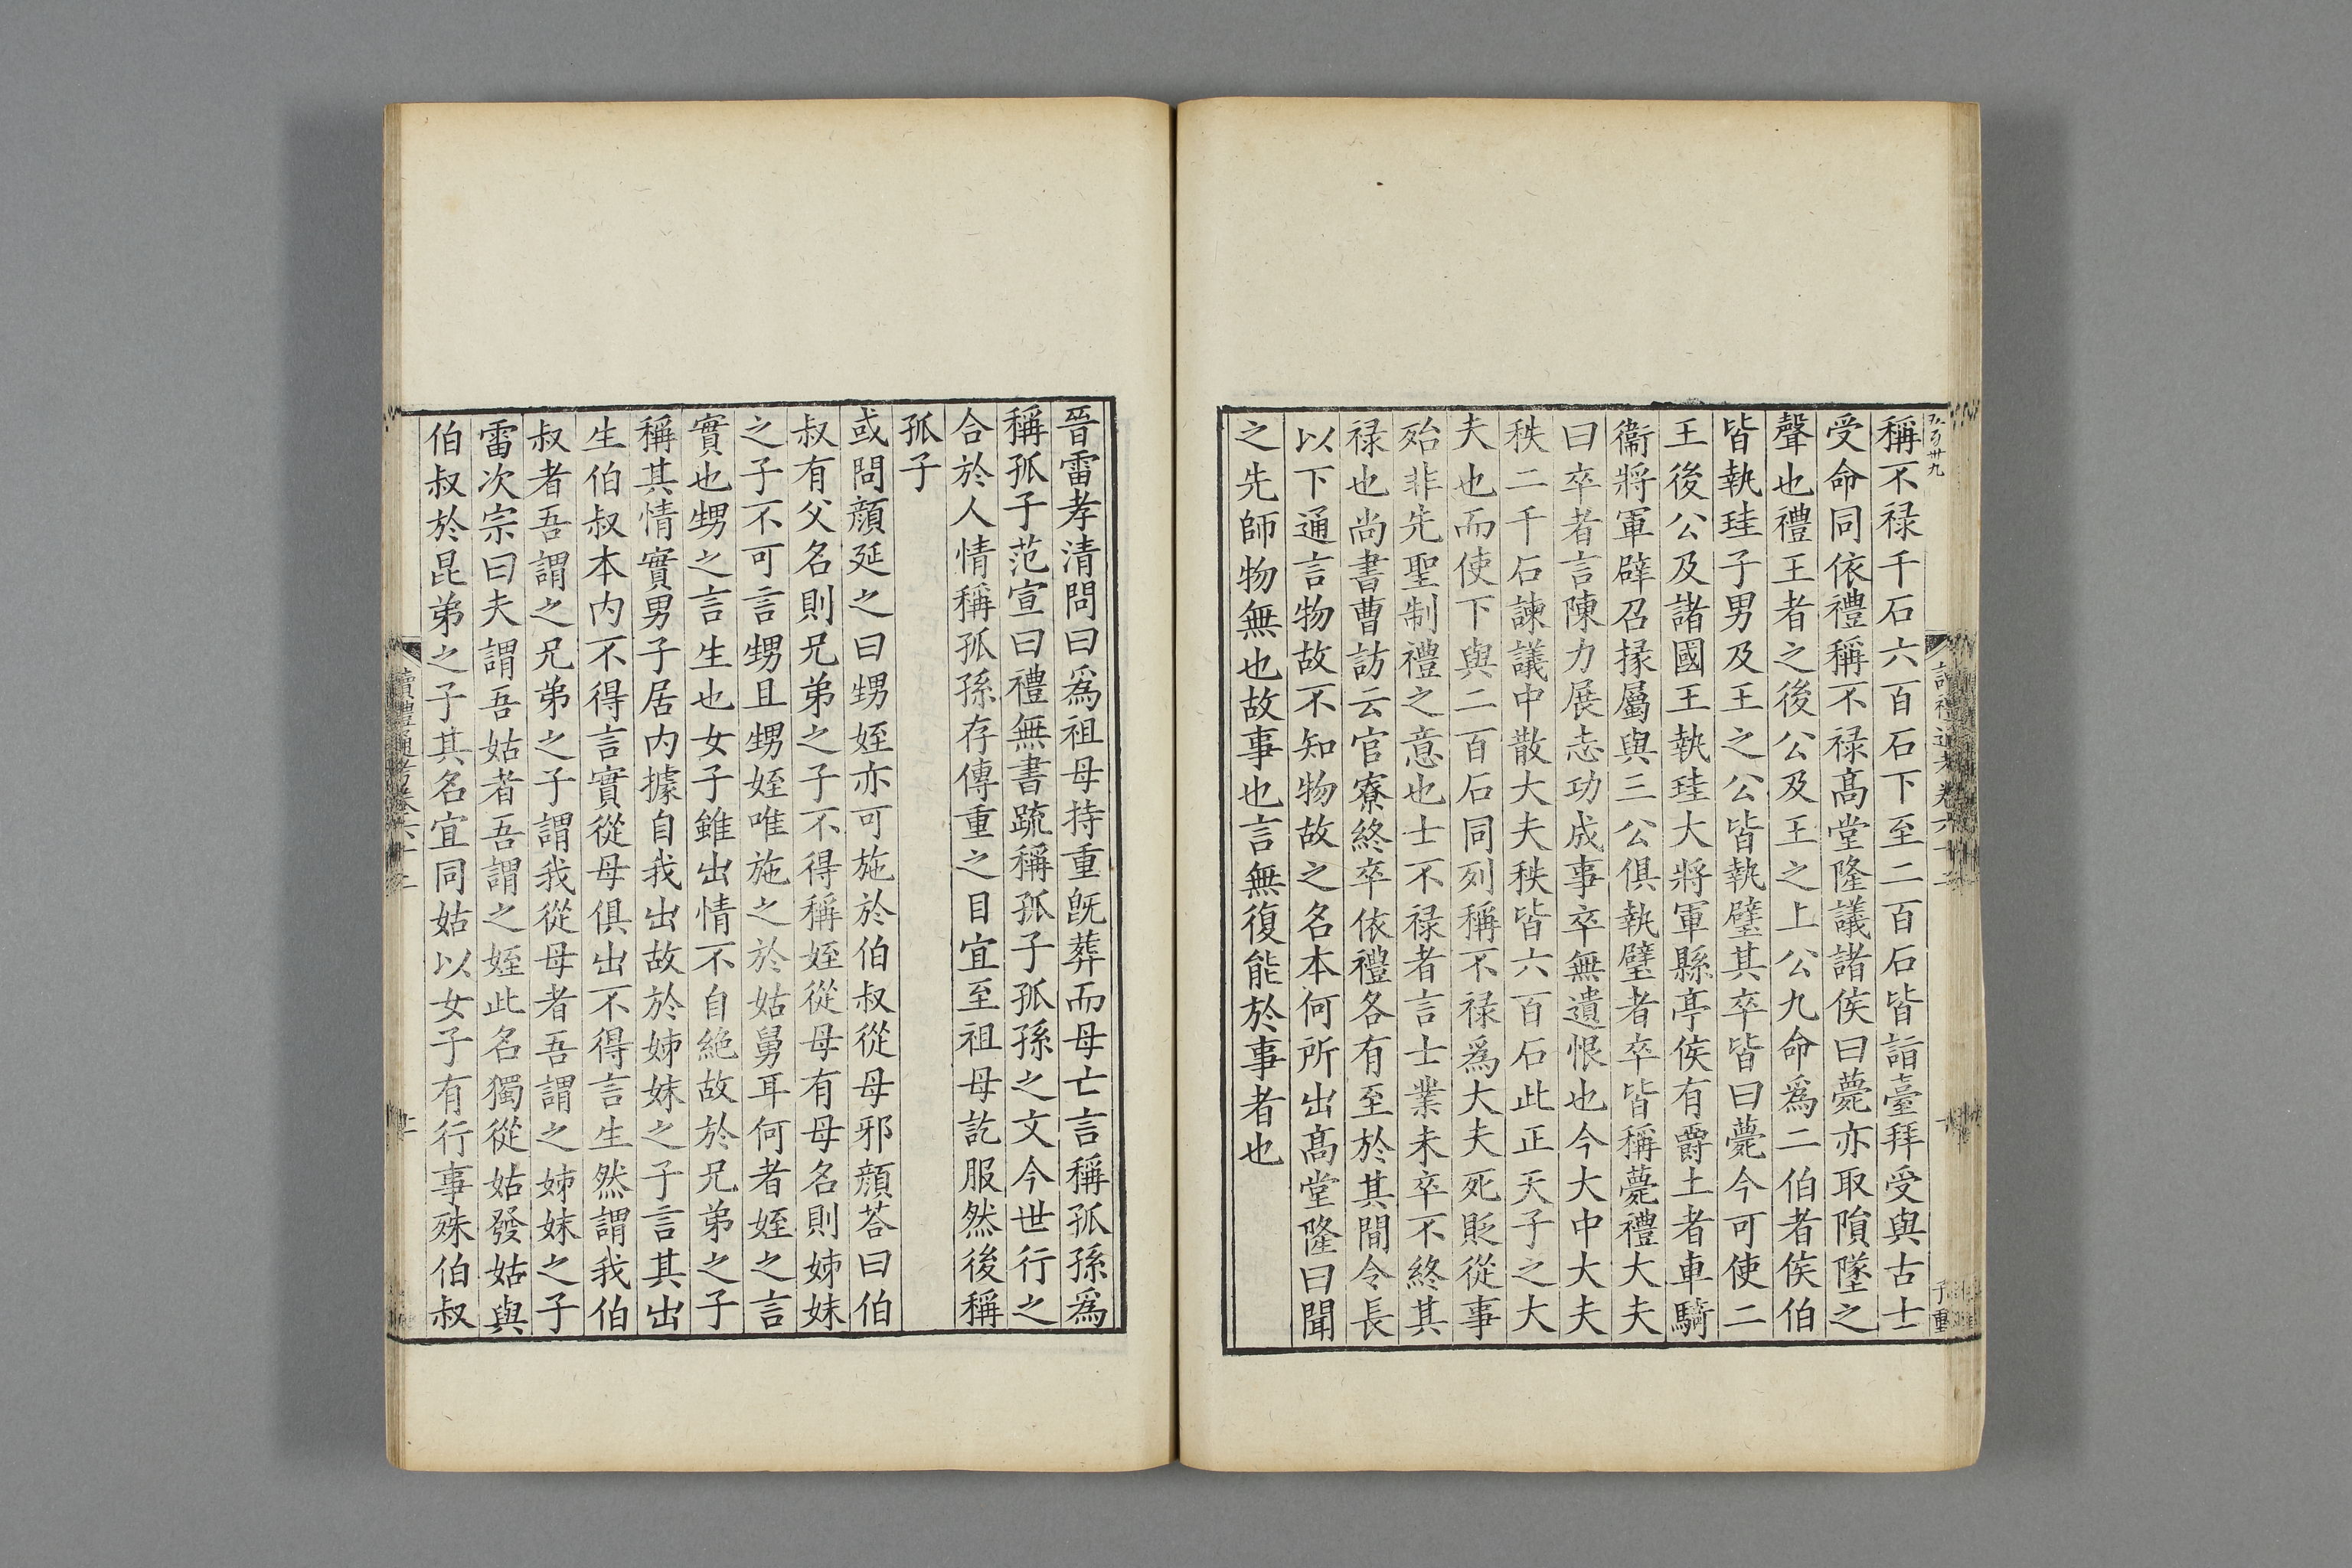 稱不禄千石六百石下至二百石皆詣臺拜受與古士
受命同依禮稱不禄高堂隆議諸侯曰薨亦取隕墜之
聲也禮王者之後公及王之上公九命爲二伯者侯伯
皆執珪子男及王之公皆執璧其卒皆曰薨今可使二
王後公及諸國王執珪大將軍縣亭侯有爵土者車騎
衞將軍辟召掾屬與三公俱執璧者卒皆稱薨禮大夫
曰卒者言陳力展志功成事卒無遺恨也今大中大夫
秩二千石諫議中散大夫秩皆六百石此正天子之大
夫也而使下與二百石同列稱不禄爲大夫死貶從事
殆非先聖制禮之意也士不禄者言士業未卒不終其
禄也尚書曹訪云官寮終卒依禮各有至於其間令長
以下通言物故不知物故之名本何所出高堂隆曰聞
之先師物無也故事也言無復能於事者也
晉雷孝清問曰爲祖母持重既葬而母亡言稱孤孫爲
稱孤子范宣曰禮無書疏稱孤子孤孫之文今世行之
合於人情稱孤孫存傳重之目宜至祖母訖服然後稱
孤子
或問顔延之曰甥姪亦可施於伯叔從母邪顔荅曰伯
叔有父名則兄弟之子不得稱姪從母有母名則姊妹
之子不可言甥且甥姪唯施之於姑舅耳何者姪之言
實也甥之言生也女子雖出情不自絶故於兄弟之子
稱其情實男子居内據自我出故於姊妹之子言其出
生伯叔本内不得言實從母俱出不得言生然謂我伯
叔者吾謂之兄弟之子謂我從母者吾謂之姊妹之子
雷次宗曰夫謂吾姑者吾謂之姪此名獨從姑發姑與
伯叔於昆弟之子其名宜同姑以女子有行事殊伯叔